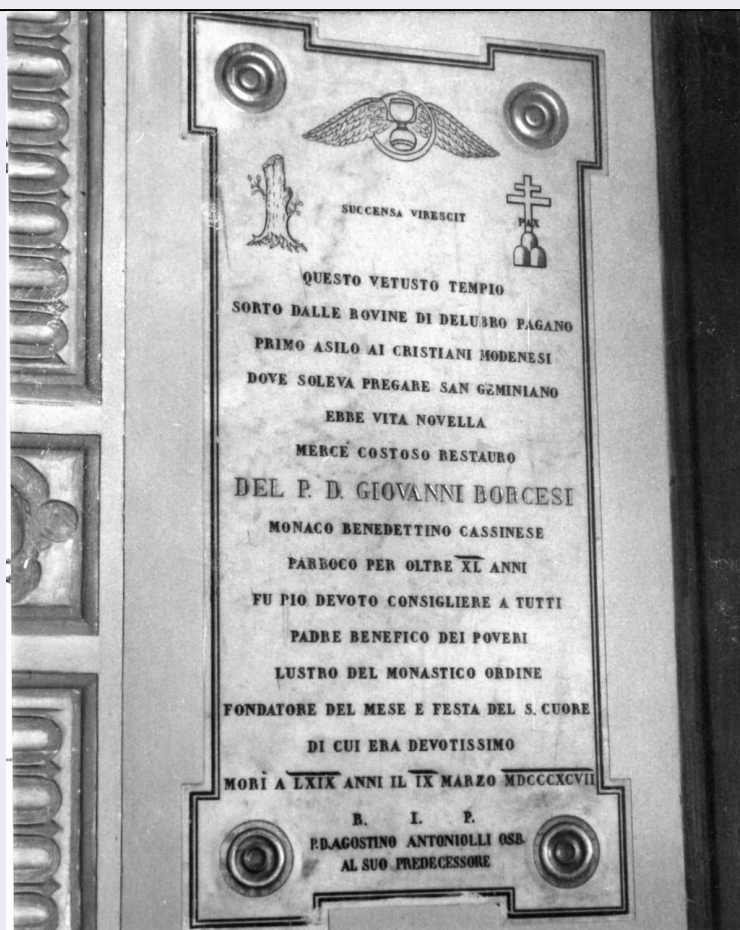 SUCCENSA VIRESCIT
PAX
QUESTO VETUSTO TEMPIO
SORTO DALLE ROVINE DI DELUBRO PAGANO
PRIMO ASILO AI CRISTIANI MODENESI
DOVE SOLEVA PREGARE SAN GEMINIANO
EBBE VITA NOVELLA
MERCÉ COSTOSO RESTAURO
DEL P. D. GIOVANNI BORGESI
MONACO BENEDETTINO CASSINESE
PARROCO PER OLTRE XL ANNI
FU PIO DEVOTO CONSIGLIERE A TUTTI
PADRE BENEFICO DEI POVERI
LUSTRO DEL MONASTICO ORDINE
FONDATORE DEL MESE E FESTA DEL S. CUORE
DI CUI ERA DEVOTISSIMO
MORÌ A LXIX ANNI IL IX MARZO MDCCCXCVII
R. I. P.
P.D.AGOSTINO ANTONIOLLI O.S.B.
AL SUO PREDECESSORE